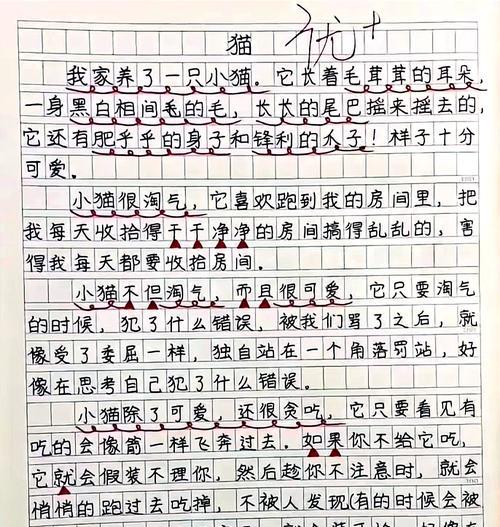 优+
猫
我家养了一只小猫。它长着毛茸茸的耳朵,
一身黑白相间毛的毛,长长的尾巴摇来摇去的,
它还有肥乎乎的身子和锋利的爪子!样子十分
可爱。
小猫很淘气,它喜欢跑到我的房间里,把
我每天收拾得干干净净的房间搞得乱乱的,害
得我每天都要收拾房间。
小猫不但淘气,而且很可爱,它只要淘气
的时候,犯了什么错误,被我们骂了之后,就
像受了委屈一样,独自站在一个角落罚站,好
像在思考自己犯了什么错误。
小猫除了可爱,还很贪吃,它只要看见有
吃的会像箭一样飞奔过去。如果你不给它吃,
它就会假装不理你,然后趁你不注意时,就会
悄悄的跑过去吃掉,不被人发现(有的时候会被